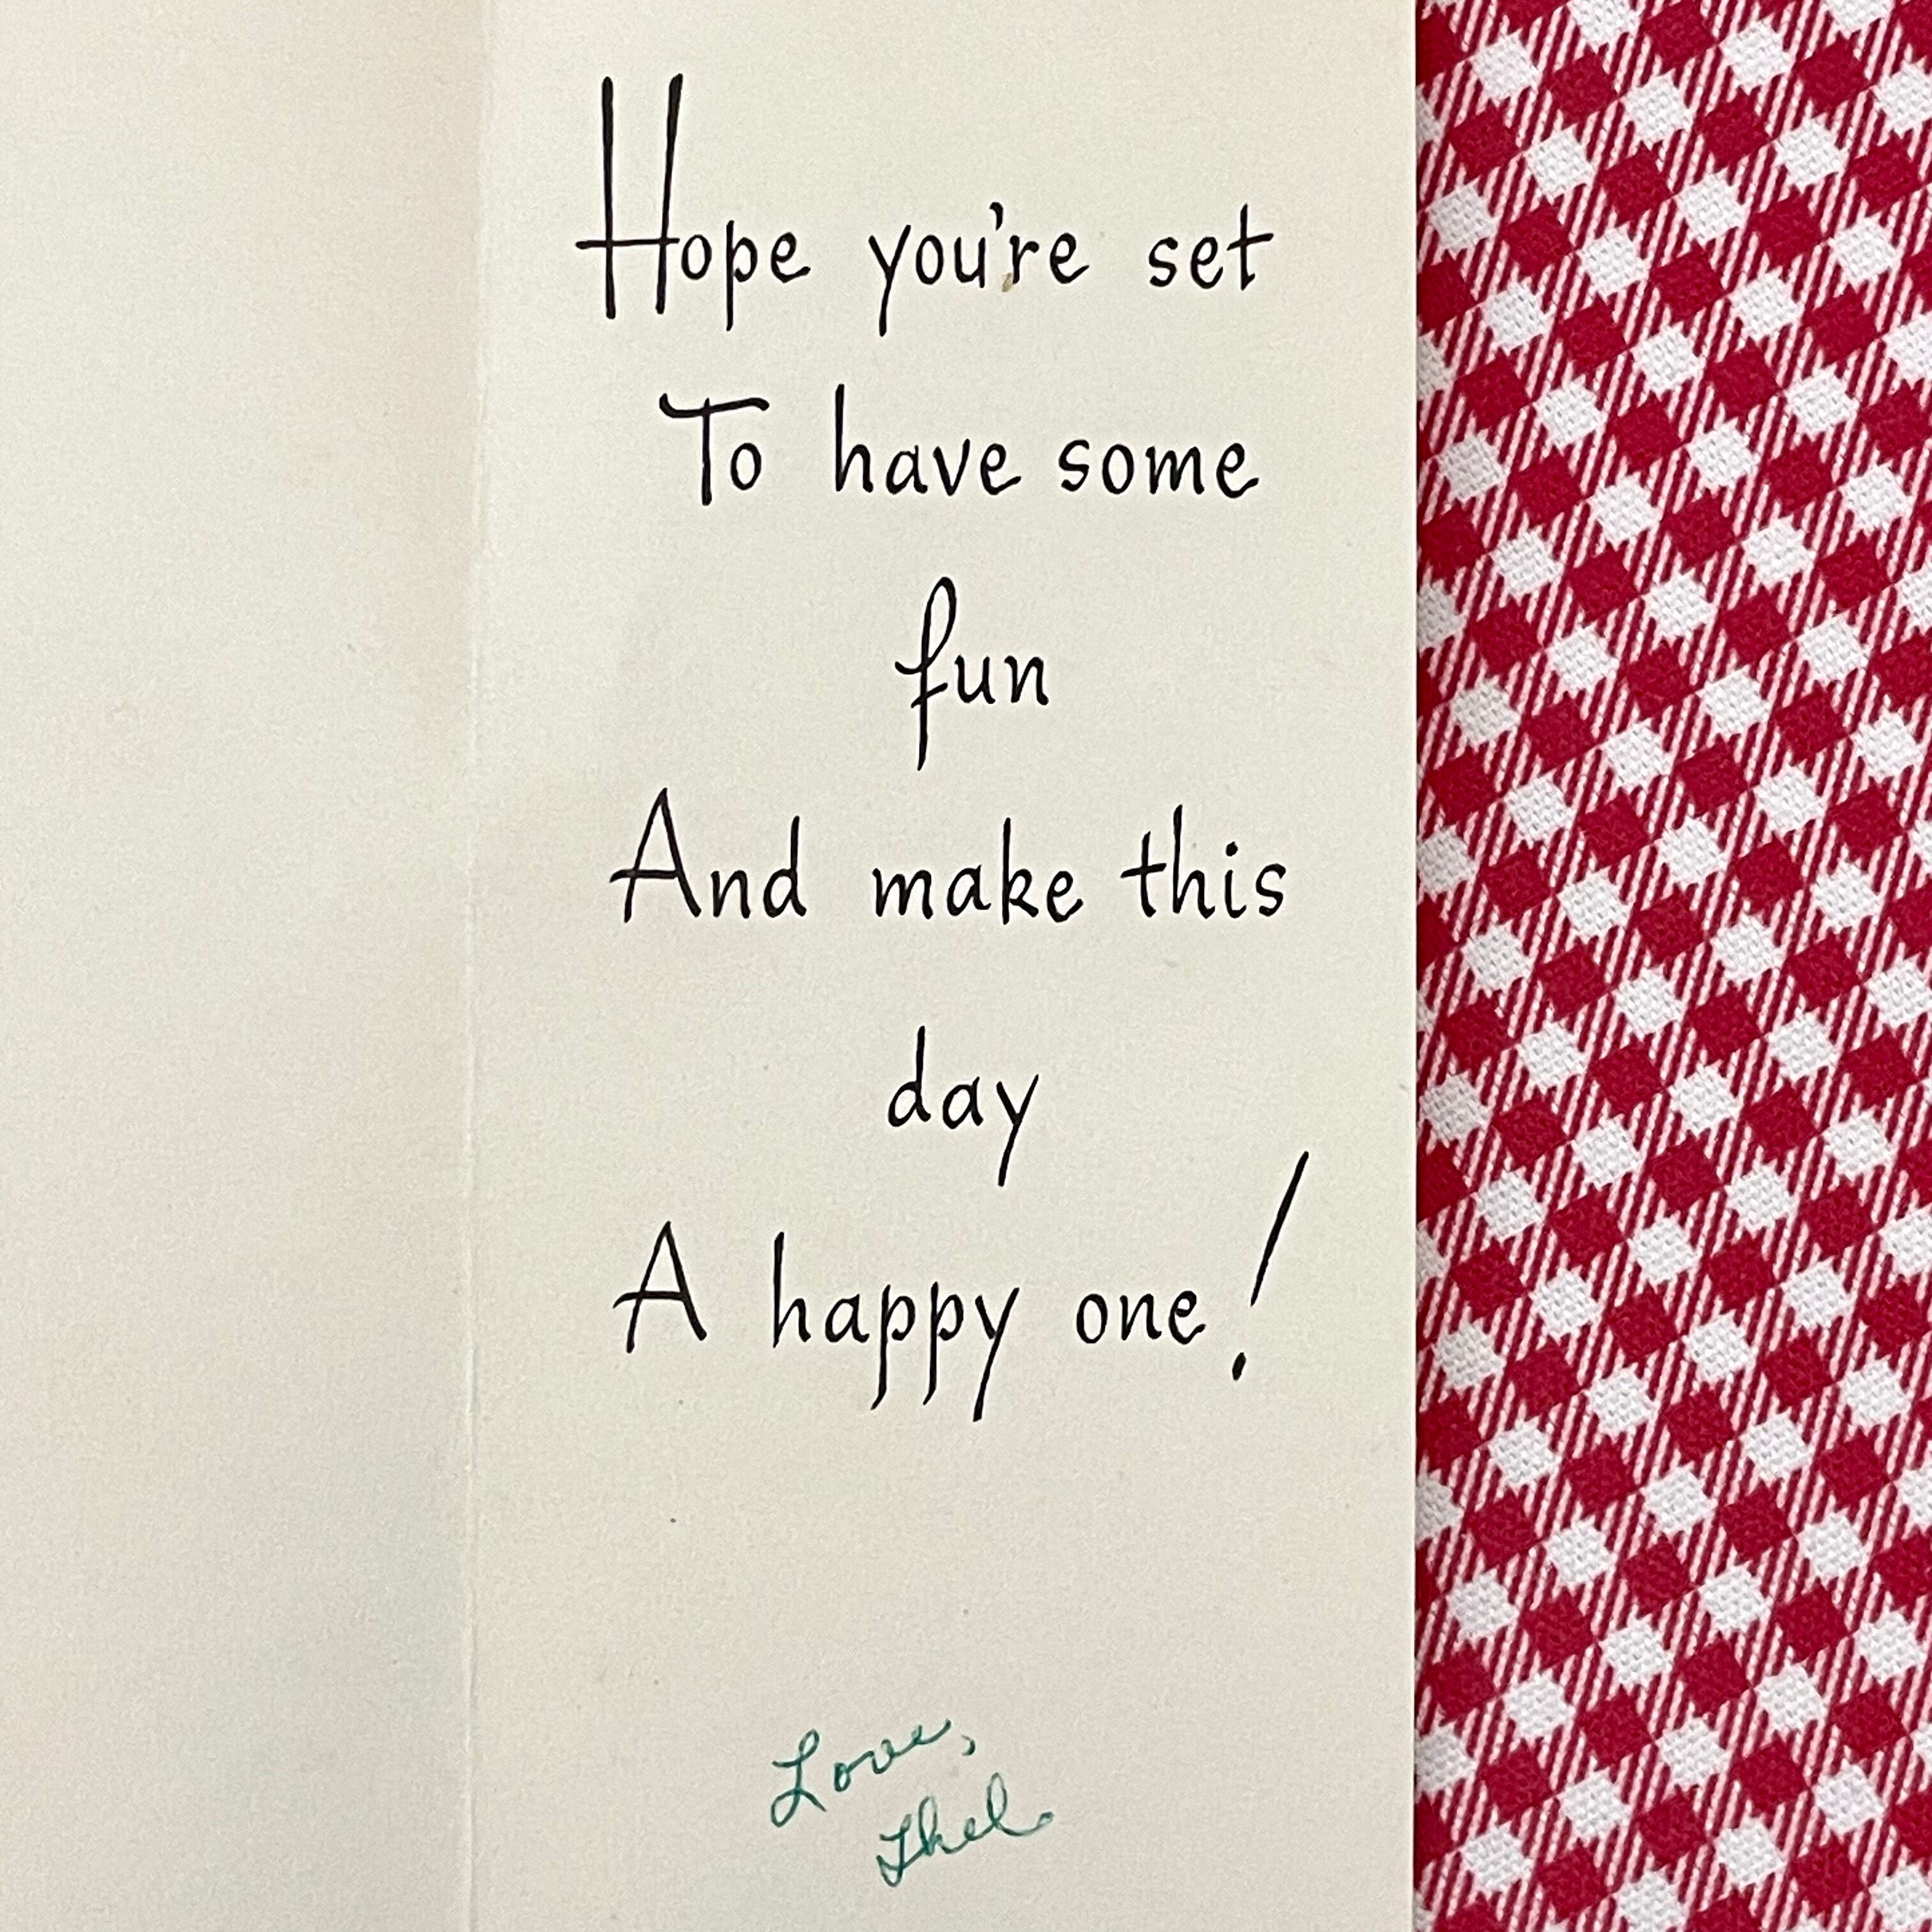 Hope you're set
To have some
fun
And make this
day
A happy one!
Love,
Thel